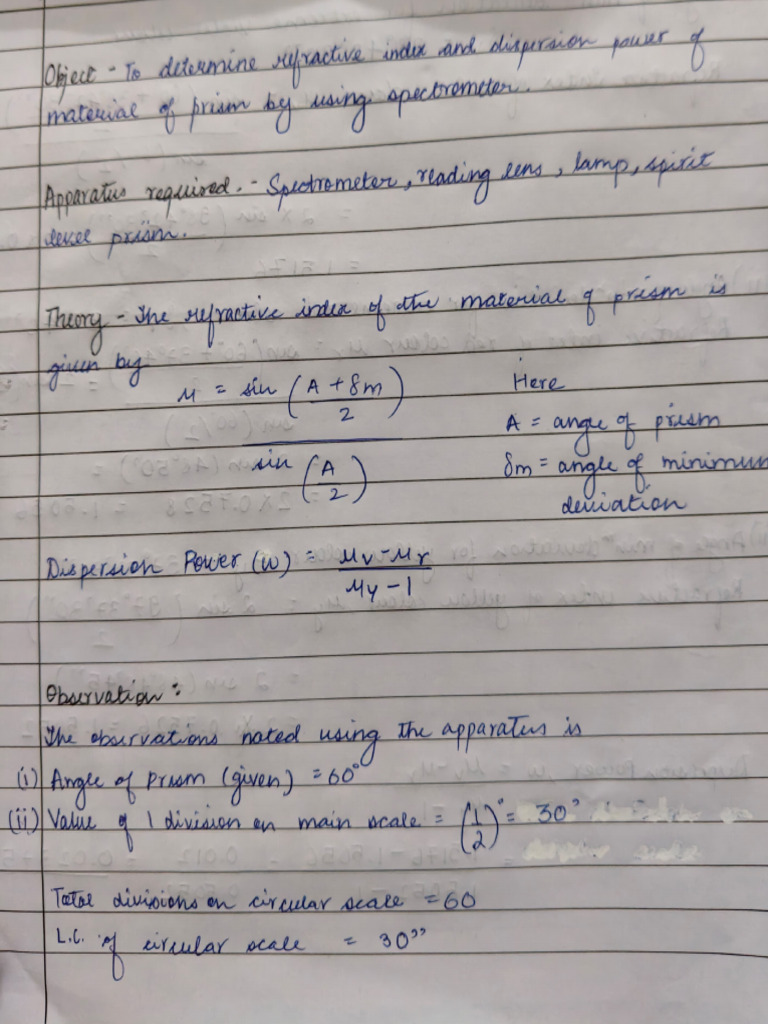 Object - To determine refractive index and dispersion power of
material of prism by using spectrometer.
Apparatus required. - Spectrometer, reading lens, lamp, spirit
level prism.
Theory - The refractive index of the material of prism is
given by
μ = sin (A + δm / 2) / sin (A / 2)
Here
A = angle of prism
δm = angle of minimum
deviation
Dispersion Power (ω) = μv - μr / μy - 1
Observation :
The observations noted using the apparatus is
(i) Angle of prism (given) = 60°
(ii) Value of 1 division on main scale = (1/2)° = 30'
Total divisions on circular scale = 60
L.C. of circular scale = 30"